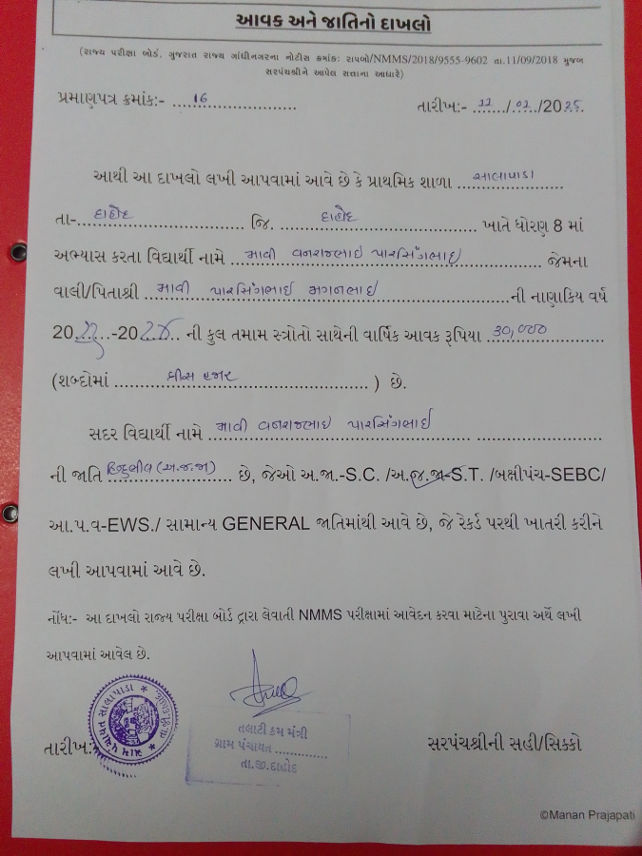 આવક અને જાતિનો દાખલો
(રાજ્ય પરીક્ષા બોર્ડ, ગુજરાત રાજ્ય ગાંધીનગરના નોટીસ ક્રમાંક: રાપબો/NMMS/2018/9555-9602 તા.11/09/2018 મુજબ
સરપંચશ્રીને આપેલ સત્તાના આધારે)
પ્રમાણપત્ર ક્રમાંક:- ...16... તારીખ:- .../02/2025.
આથી આ દાખલો લખી આપવામાં આવે છે કે પ્રાથમિક શાળા સાલાપાડા
તા-.દાહોદ જિ. દાહોદ ખાતે ધોરણ 8 માં
અભ્યાસ કરતા વિદ્યાર્થી નામે માવી વનરાજભાઈ પારસિંગભાઈ જેમના
વાલી/પિતાશ્રી માવી પારસિંગભાઈ મગનભાઈ ની નાણાકિય વર્ષ
20...-20... ની કુલ તમામ સ્ત્રોતો સાથેની વાર્ષિક આવક રૂપિયા 30,000
(શબ્દોમાં ત્રીસ હજાર ) છે.
સદર વિદ્યાર્થી નામે માવી વનરાજભાઈ પારસિંગભાઈ
ની જાતિ હિન્દુભીલ (અ.જ.જા) છે, જેઓ અ.જા.-S.C. /અ.જ.જા-S.T. /બક્ષીપંચ-SEBC/
આ.પ.વ-EWS./ સામાન્ય GENERAL જાતિમાંથી આવે છે, જે રેકર્ડ પરથી ખાતરી કરીને
લખી આપવામાં આવે છે.
નોંધ:- આ દાખલો રાજ્ય પરીક્ષા બોર્ડ દ્વારા લેવાતી NMMS પરીક્ષામાં આવેદન કરવા માટેના પુરાવા અર્થે લખી
આપવામાં આવેલ છે.
ગ્રામ પંચાયત સાલાપાડા
તલાટી કમ મંત્રી
ગ્રામ પંચાયત ..............
તા.જી.દાહોદ
તારીખ: સરપંચશ્રીની સહી/સિક્કો
©Manan Prajapati